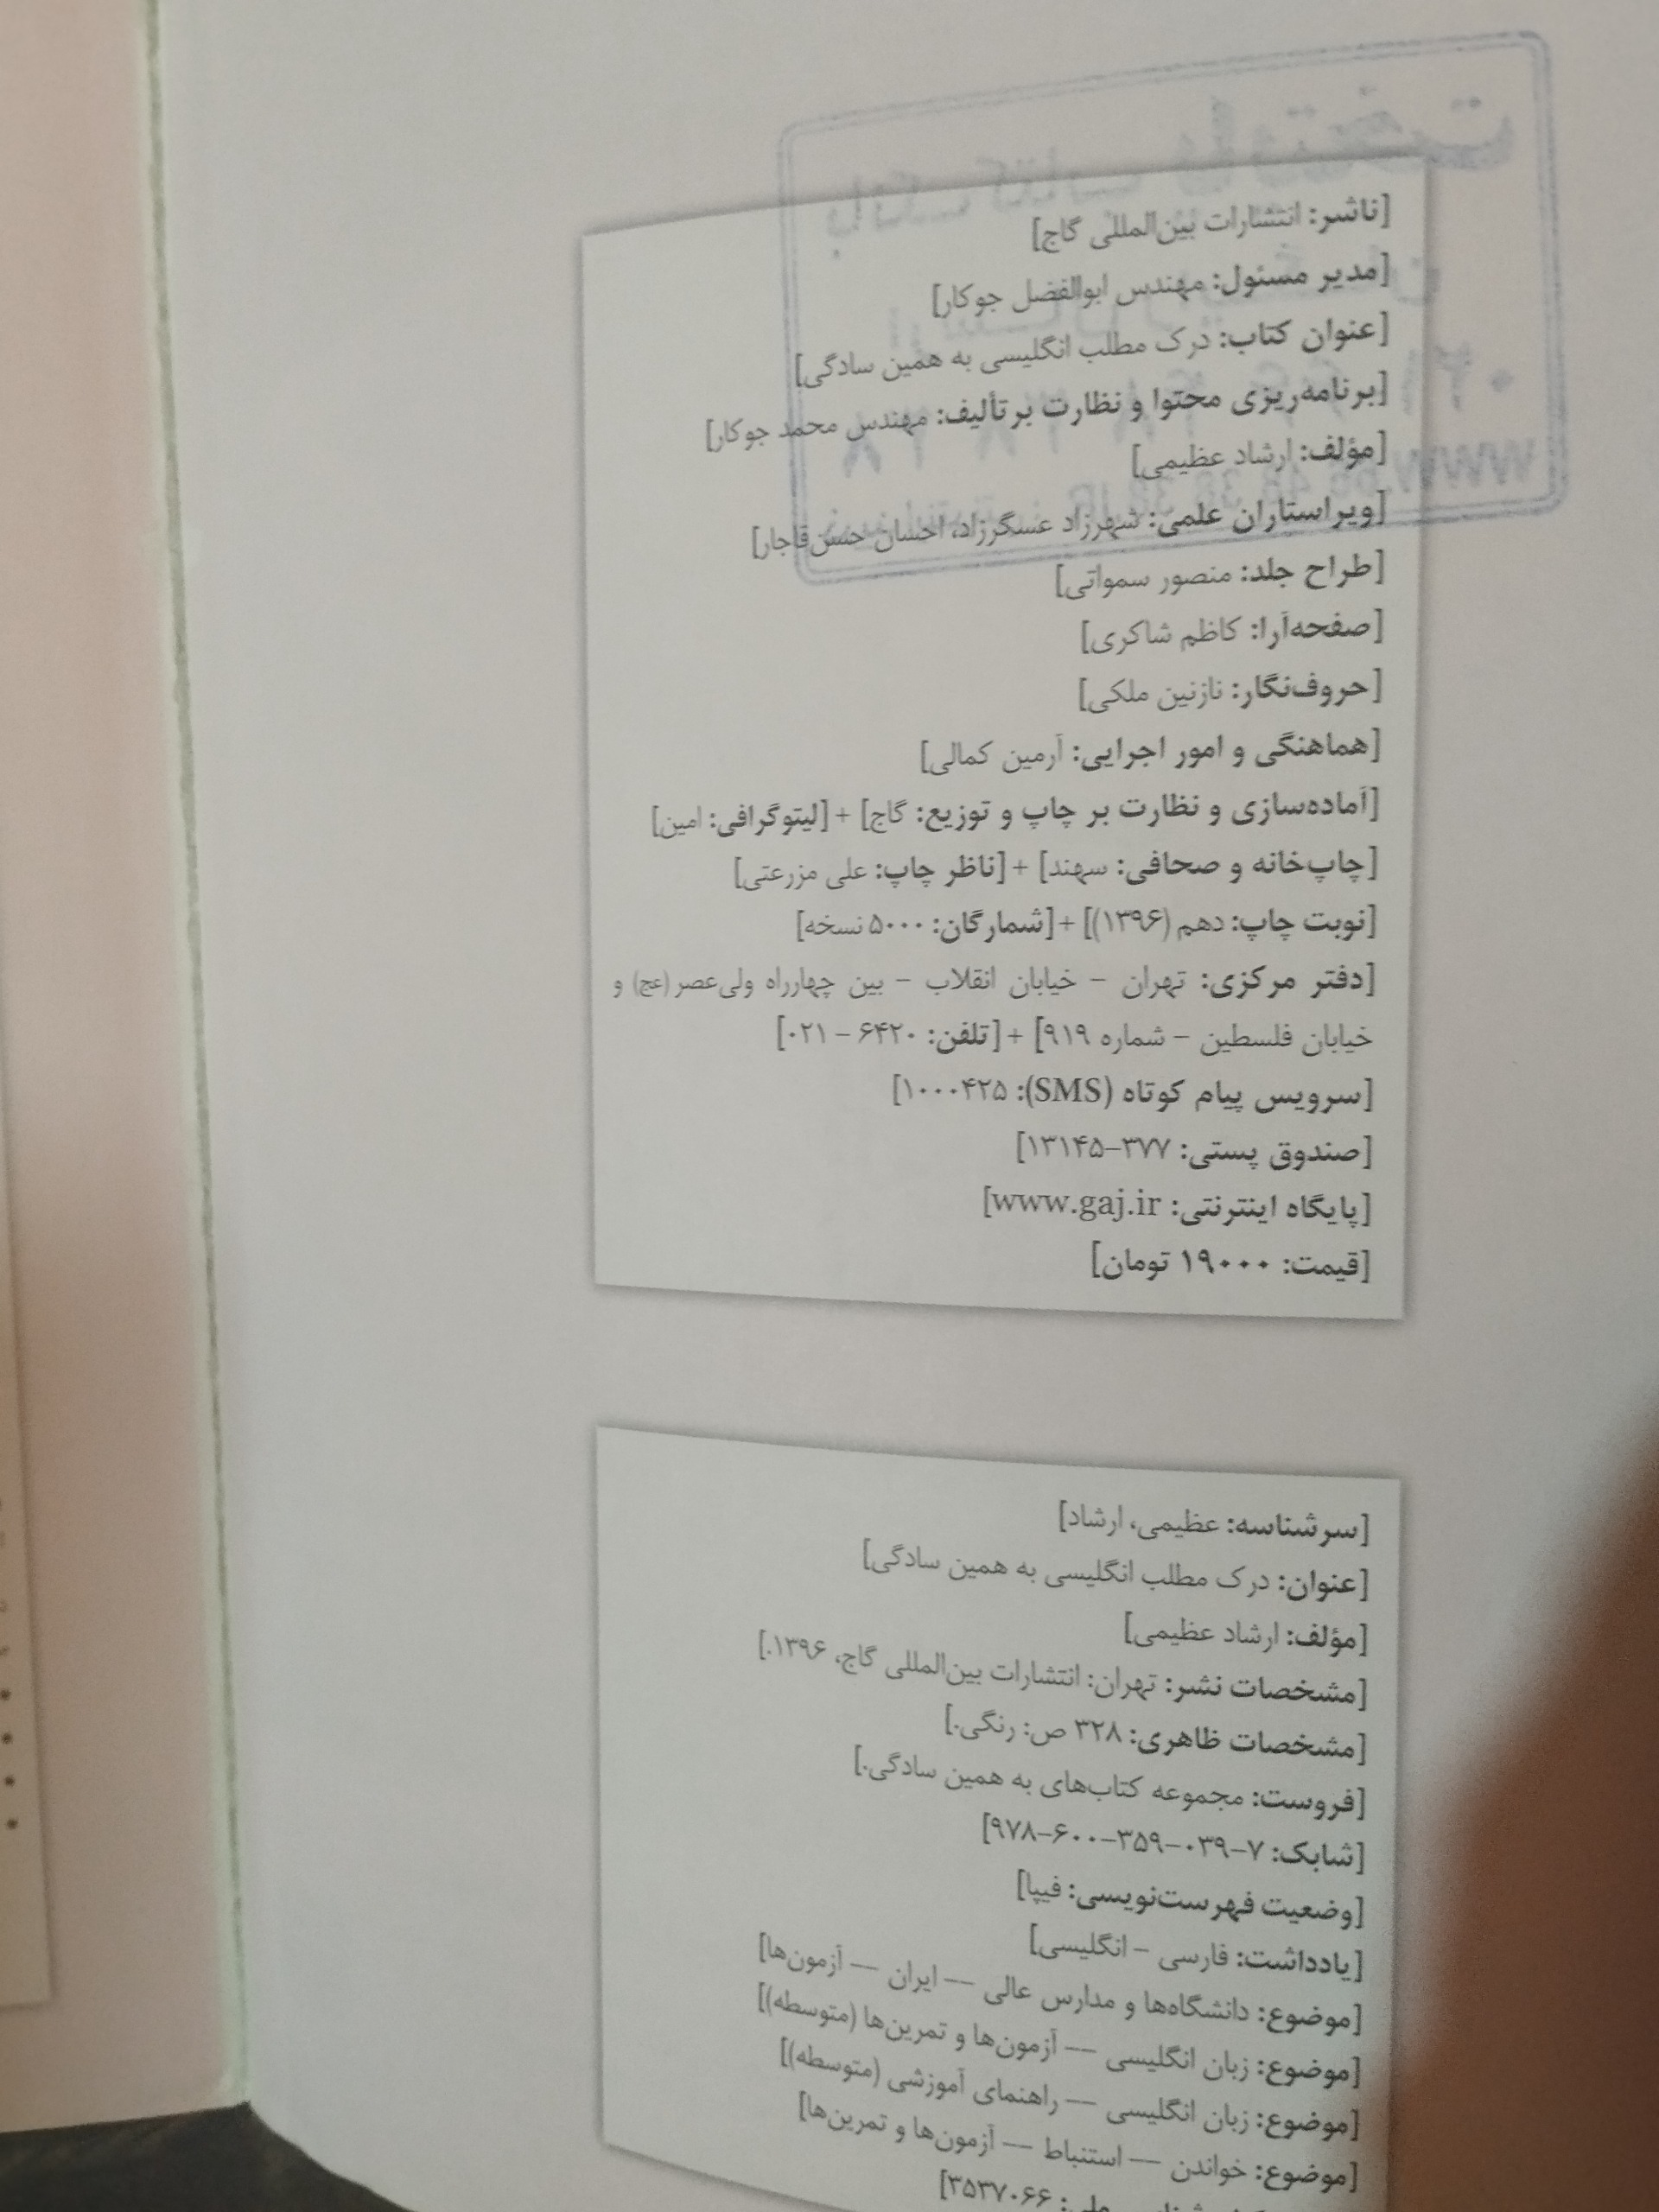 [ناشر: انتشارات بین‌المللی گاج]
[مدیر مسئول: مهندس ابوالفضل جوکار]
[عنوان کتاب: درک مطلب انگلیسی به همین سادگی]
[برنامه‌ریزی محتوا و نظارت بر تألیف: مهندس محمد جوکار]
[مؤلف: ارشاد عظیمی]
[ویراستاران علمی: شهرزاد عسگرزاد، احسان حسن‌قاجار]
[طراح جلد: منصور سمواتی]
[صفحه‌آرا: کاظم شاکری]
[حروف‌نگار: نازنین ملکی]
[هماهنگی و امور اجرایی: آرمین کمالی]
[آماده‌سازی و نظارت بر چاپ و توزیع: گاج] + [لیتوگرافی: امین]
[چاپ‌خانه و صحافی: سهند] + [ناظر چاپ: علی مزرعتی]
[نوبت چاپ: دهم (۱۳۹۶)] + [شمارگان: ۵۰۰۰ نسخه]
[دفتر مرکزی: تهران – خیابان انقلاب – بین چهارراه ولی‌عصر (عج) و
خیابان فلسطین – شماره ۹۱۹] + [تلفن: ۶۴۲۰ – ۰۲۱]
[سرویس پیام کوتاه (SMS): ۱۰۰۰۴۲۵]
[صندوق پستی: ۳۷۷–۱۳۱۴۵]
[پایگاه اینترنتی: www.gaj.ir]
[قیمت: ۱۹۰۰۰ تومان]
[سرشناسه: عظیمی، ارشاد]
[عنوان: درک مطلب انگلیسی به همین سادگی]
[مؤلف: ارشاد عظیمی]
[مشخصات نشر: تهران: انتشارات بین‌المللی گاج، ۱۳۹۶.]
[مشخصات ظاهری: ۳۲۸ ص: رنگی.]
[فروست: مجموعه کتاب‌های به همین سادگی.]
[شابک: ۷–۰۳۹–۳۵۹–۶۰۰–۹۷۸]
[وضعیت فهرست‌نویسی: فیپا]
[یادداشت: فارسی – انگلیسی]
[موضوع: دانشگاه‌ها و مدارس عالی — ایران — آزمون‌ها]
[موضوع: زبان انگلیسی — آزمون‌ها و تمرین‌ها (متوسطه)]
[موضوع: زبان انگلیسی — راهنمای آموزشی (متوسطه)]
[موضوع: خواندن — استنباط — آزمون‌ها و تمرین‌ها]
ملی: ۳۵۳۷۰۶۶]